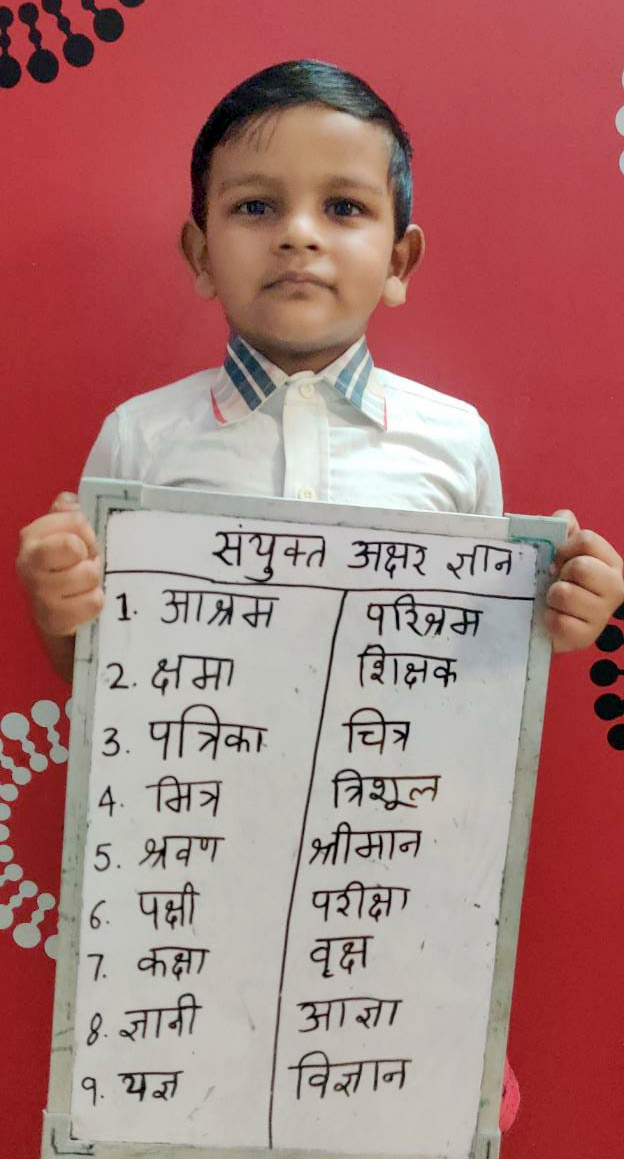 संयुक्त अक्षर ज्ञान
1. आश्रम परिश्रम
2. क्षमा शिक्षक
3. पत्रिका चित्र
4. मित्र त्रिशूल
5. श्रवण श्रीमान
6. पक्षी परीक्षा
7. कक्षा वृक्ष
8. ज्ञानी आज्ञा
9. यज्ञ विज्ञान